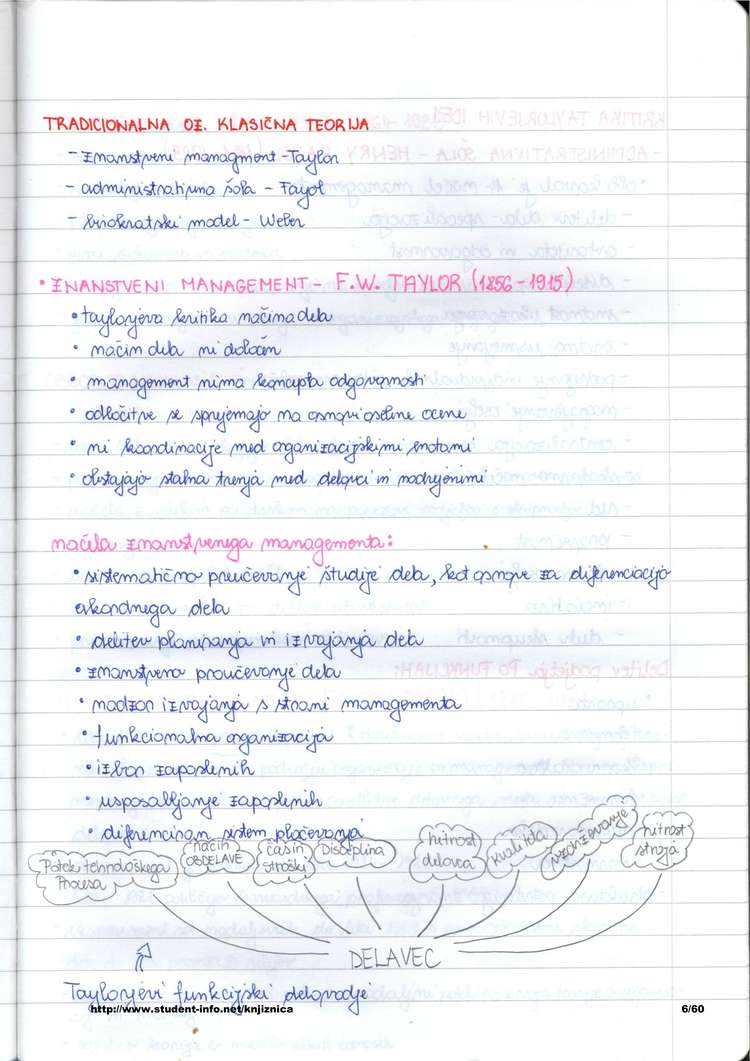 TRADICIONALNA OZ. KLASIČNA TEORIJA
- Znanstveni managment - Taylor
- administrativna šola - Fayol
- birokratski model - Weber
• ZNANSTVENI MANAGEMENT - F.W. TAYLOR (1856-1915)
• taylorjeva kritika načina dela
• način dela ni določen
• management nima koncepta odgovornosti
• odločitve se sprejemajo na osnovi osebne ocene
• ni koordinacije med organizacijskimi enotami
• obstajajo stalna trenja med delavci in nadrejenimi
načela znanstvenega managementa:
• sistematično preučevanje študije dela, kot osnove za diferenciacijo
akordnega dela
• delitev planiranja in izvajanja dela
• znanstveno proučevanje dela
• nadzor izvajanja s strani managementa
• funkcionalna organizacija
• izbor zaposlenih
• usposabljanje zaposlenih
• diferenciran sistem plačevanja
Potek tehnološkega
Procesa
način
OBDELAVE
čas in
stroški
Disciplina
hitrost
delavca
kvaliteta
vzdrževanje
hitrost
stroja
DELAVEC
Taylorjevi funkcijski delovodje
http://www.student-info.net/knjiznica
6/60